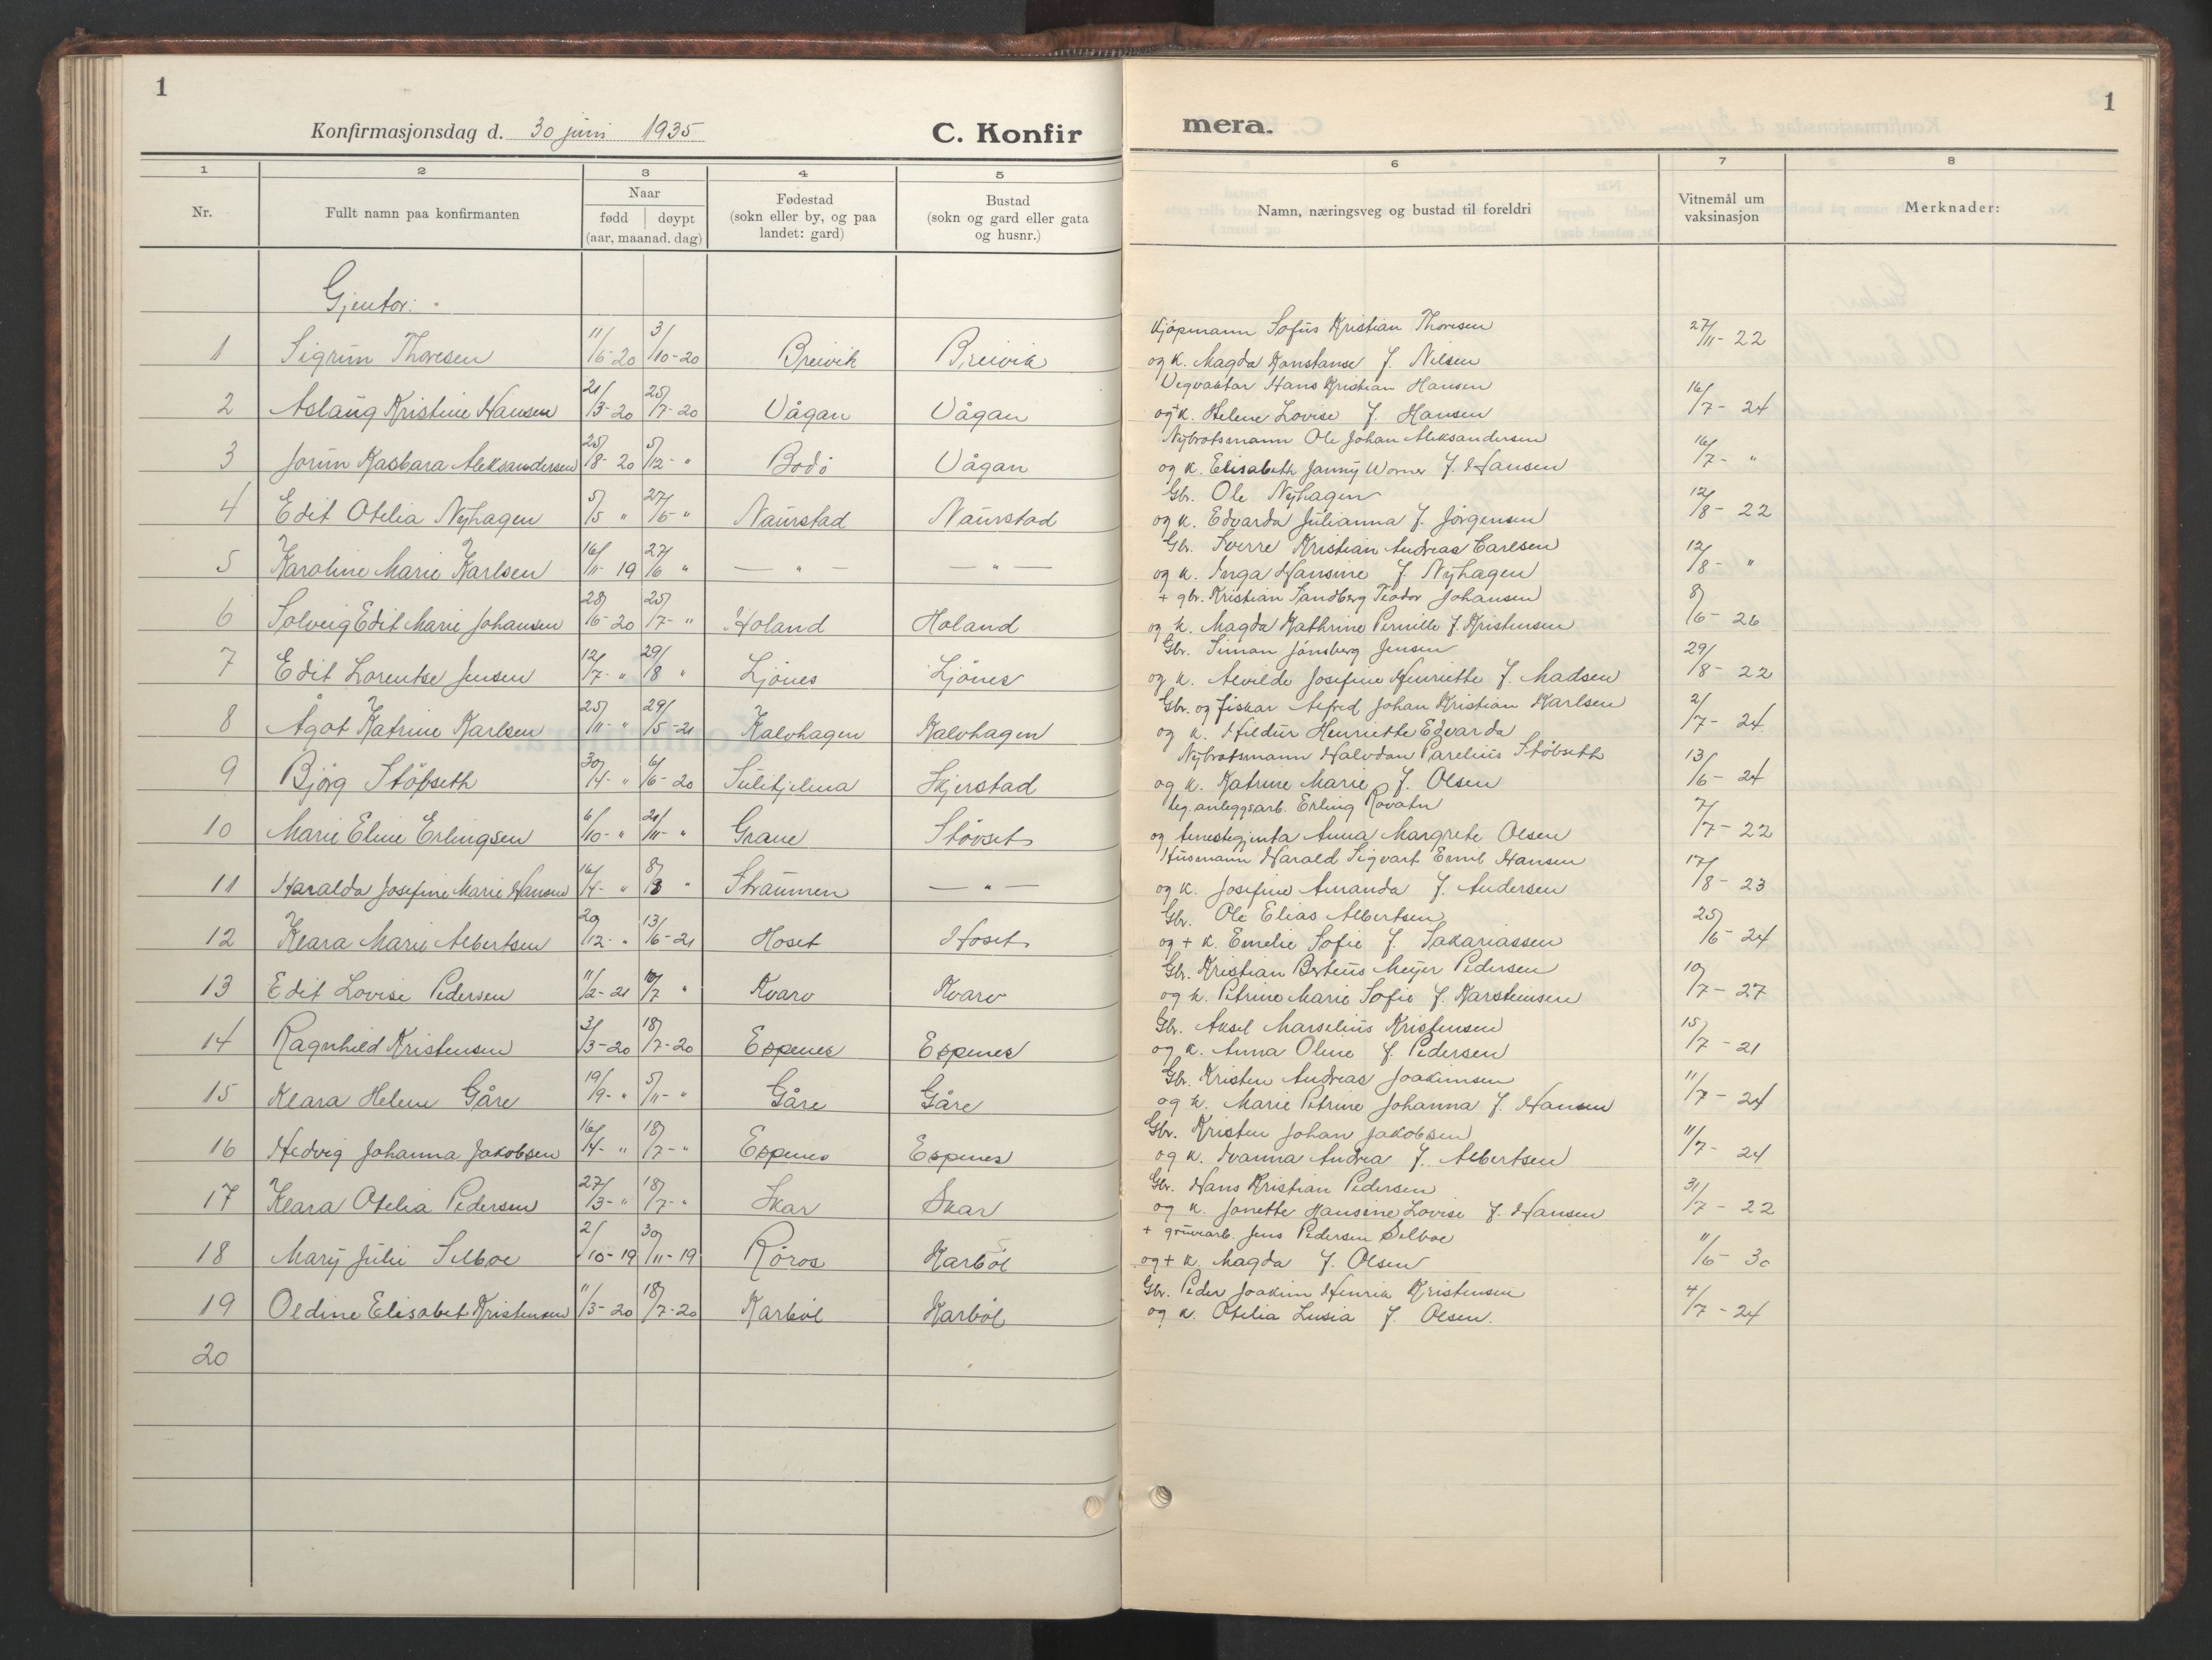 1
Konfirmasjonsdag d. 30 juni 1935
C. Konfir
mera.
1
1 2 3 4 5 6 7 8
Nr.
Fullt namn paa konfirmanten
Naar
fødd døypt
(aar, maanad, dag)
Fødestad
(sokn eller by, og paa
landet: gard)
Bustad
(sokn og gard eller gata
og husnr.)
Namn, næringsveg og bustad til foreldri
Vitnemål um
vaksinasjon
Merknader:
Gjentor:
Kjøpmann Sofus Kristian Thoresen
1 Sigrun Thoresen 11/6-20 3/10-20 Breivik Breivik og k. Magda Konstanse f. Nilsen 27/11-22
Vegvaktar Hans Kristian Hansen
2 Aslaug Kristine Hansen 21/3-20 25/7-20 Vågan Vågan og k. Helene Lovise f. Hansen 16/7-24
Nybrotsmann Ole Johan Aleksandersen
3 Jorun Kasbara Aleksandersen 25/8-20 5/12-" Bodö Vågan og k. Elisabeth Janny Worner f. Hansen 16/7-"
Gbr. Ole Nyhagen
4 Edit Otelia Nyhagen 5/5 " 27/6-" Naurstad Naurstad og k. Edvarda Julianna f. Jörgensen 12/8-22
Gbr. Sverre Kristian Andreas Carlsen
5 Karoline Marie Karlsen 16/11-19 27/6 " — " — — " — og k. Inga Hansine f. Nyhagen 12/8-"
+ gbr. Kristian Sandberg Teodor Johansen
6 Solveig Edit Marie Johansen 28/6-20 25/7-" Holand Holand og k. Magda Kathrine Pernille f. Kristensen 8/6-26
Gbr. Simon Jönsberg Jensen
7 Edit Lorentse Jensen 12/7-" 29/8 " Ljönes Ljönes og k. Alvilde Josefine Henriette f. Madsen 29/8-22
Gbr. og fiskar Alfred Johan Kristian Karlsen
8 Ågot Katrine Karlsen 25/11-" 29/5-21 Kalvhagen Kalvhagen og k. Hildur Henriette Edvarda 2/7-24
Nybrotsmann Halvdan Parelius Stöbseth
9 Björg Stöbseth 30/4-" 6/6-20 Sulitjelma Skjerstad og k. Katrine Marie f. Olsen 13/6-24
Ug. anleggsarb. Erling Rovatn
10 Marie Eline Erlingsen 6/10-" 21/11-" Grane Stövset og tenestegjenta Anna Margrete Olsen 7/7-22
Husmann Harald Sigvart Emil Hansen
11 Haralda Josefine Marie Hansen 16/4-" 8/8 " Straumen — " — og k. Josefine Amanda f. Andersen 17/8-23
Gbr. Ole Elias Albertsen
12 Klara Marie Albertsen 20/12-" 13/6-21 Hoset Hoset og + k. Emelie Sofie f. Sakariassen 25/6-24
Gbr. Kristian Berteus Meyer Pedersen
13 Edit Lovise Pedersen 11/2-21 10/7 " Kvarv Kvarv og k. Petrine Marie Sofie f. Karsteinsen 10/7-27
Gbr. Aksel Marselius Kristensen
14 Ragnhild Kristensen 3/3-20 18/7-20 Espenes Espenes og k. Anna Oline f. Pedersen 15/7-21
Gbr. Kristen Andreas Joakimsen
15 Klara Helene Gåre 19/9-" 5/11-" Gåre Gåre og k. Marie Petrine Johanna f. Hansen 11/7-24
Gbr. Kristen Johan Jakobsen
16 Hedvig Johanna Jakobsen 16/4-" 18/7-" Espenes Espenes og k. Ivanna Andrea f. Albertsen 11/7-24
Gbr. Hans Kristian Pedersen
17 Klara Otelia Pedersen 27/3-" 18/7-" Skar Skar og k. Jonette Hansine Lovise f. Hansen 31/7-22
+ gruvearb. Jens Pedersen Selboe
18 Mary Julie Selboe 2/10-19 30/11-19 Röros Karböl og + k. Magda f. Olsen 11/6-30
Gbr. Peder Joakim Henrik Kristensen
19 Oldine Elisabet Kristensen 11/3-20 18/7-20 Karböl Karböl og k. Otelia Lusia f. Olsen. 4/7-24
20